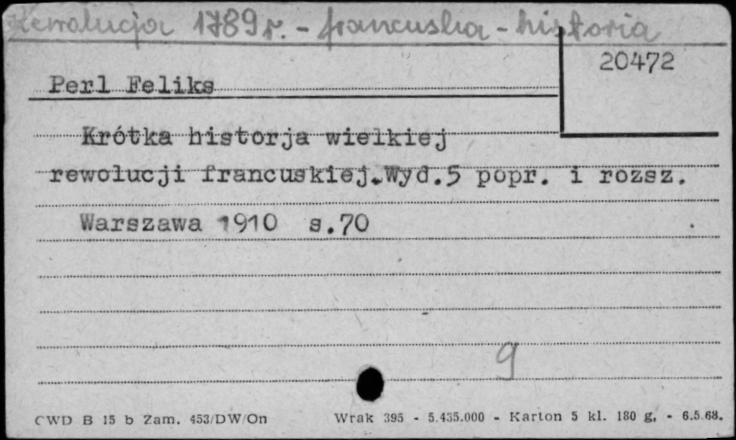 Rewolucja 1789 r. - francuska - historia
20472
Perl Feliks
Krótka historja wielkiej
rewolucji francuskiej.Wyd.5 popr. i rozsz.
Warszawa 1910 s.70
9
CWD B 15 b Zam. 453/DW/On Wrak 395 - 5.435.000 - Karton 5 kl. 180 g. - 6.5.68.